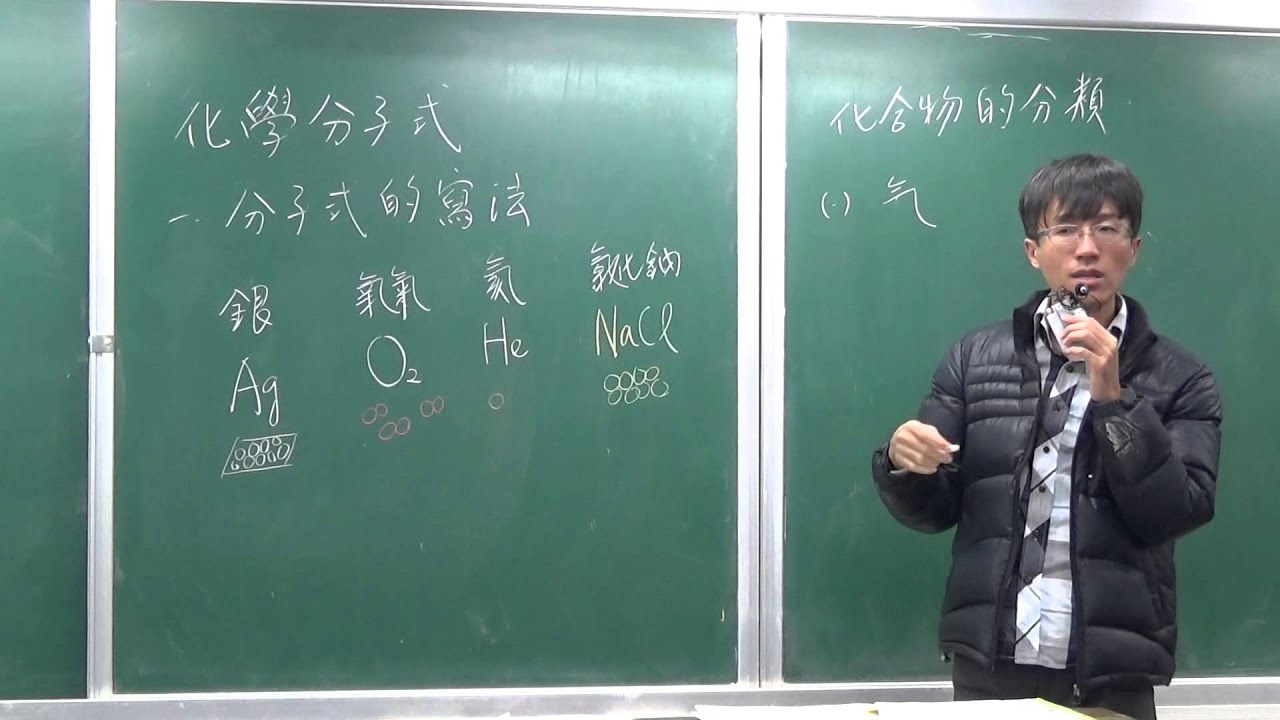 化學分子式
一. 分子式的寫法
銀 氧氣 氦 氯化鈉
Ag O₂ He NaCl
化合物的分類
(一) 气